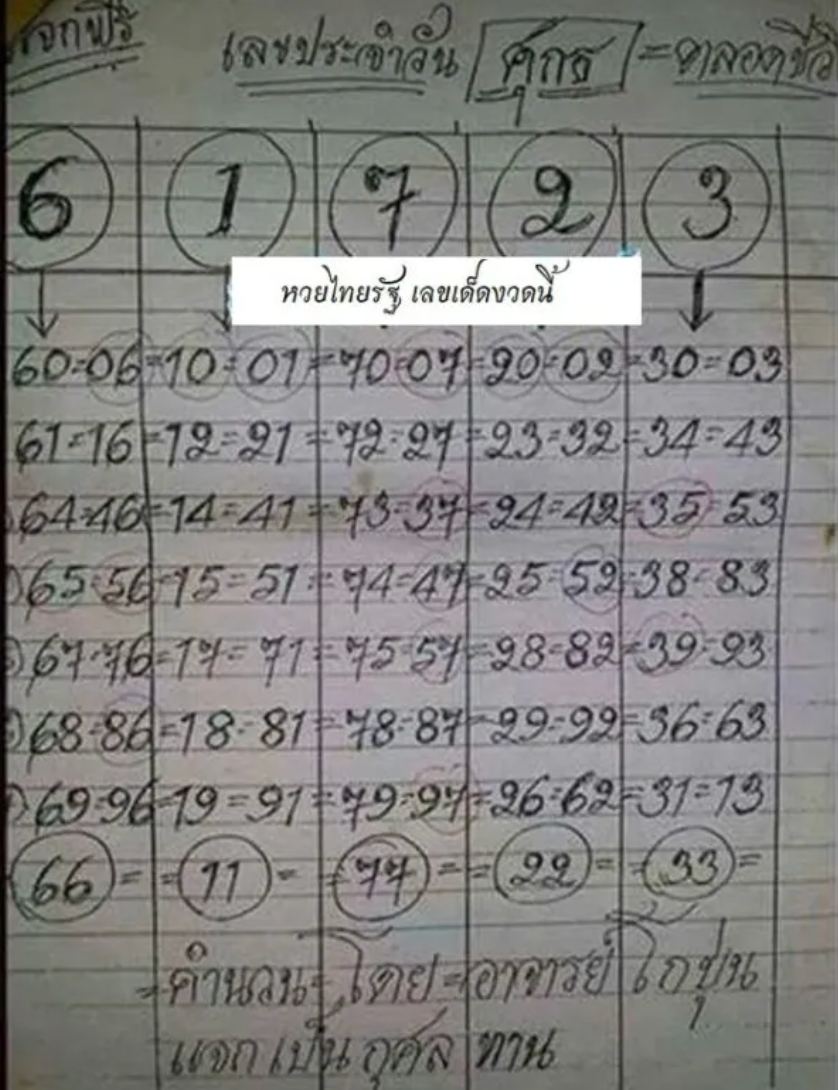 แจกฟรี เลขประจำวัน ศุกร์ =ตลอดชีวิ
6 1 7 2 3
หวยไทยรัฐ เลขเด็ดงวดนี้
60=06=10=01=70=07=20=02=30=03
61=16=12=21=72=27=23=32=34=43
64=46=14=41=73=37=24=42=35=53
65=56=15=51=74=47=25=52=38=83
67=76=17=71=75=57=28=82=39=93
68=86=18=81=78=87=29=92=36=63
69=96=19=91=79=97=26=62=31=13
66= =11= =77= =22= =33=
=คำนวน=โดย=อาจารย์ โกปุ่น
แจกเป็น กุศล ทาน